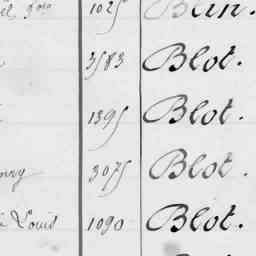 1025 Blin.
3583 Blot.
1395 Blot.
3075 Blot.
Louis 1090 Blot.